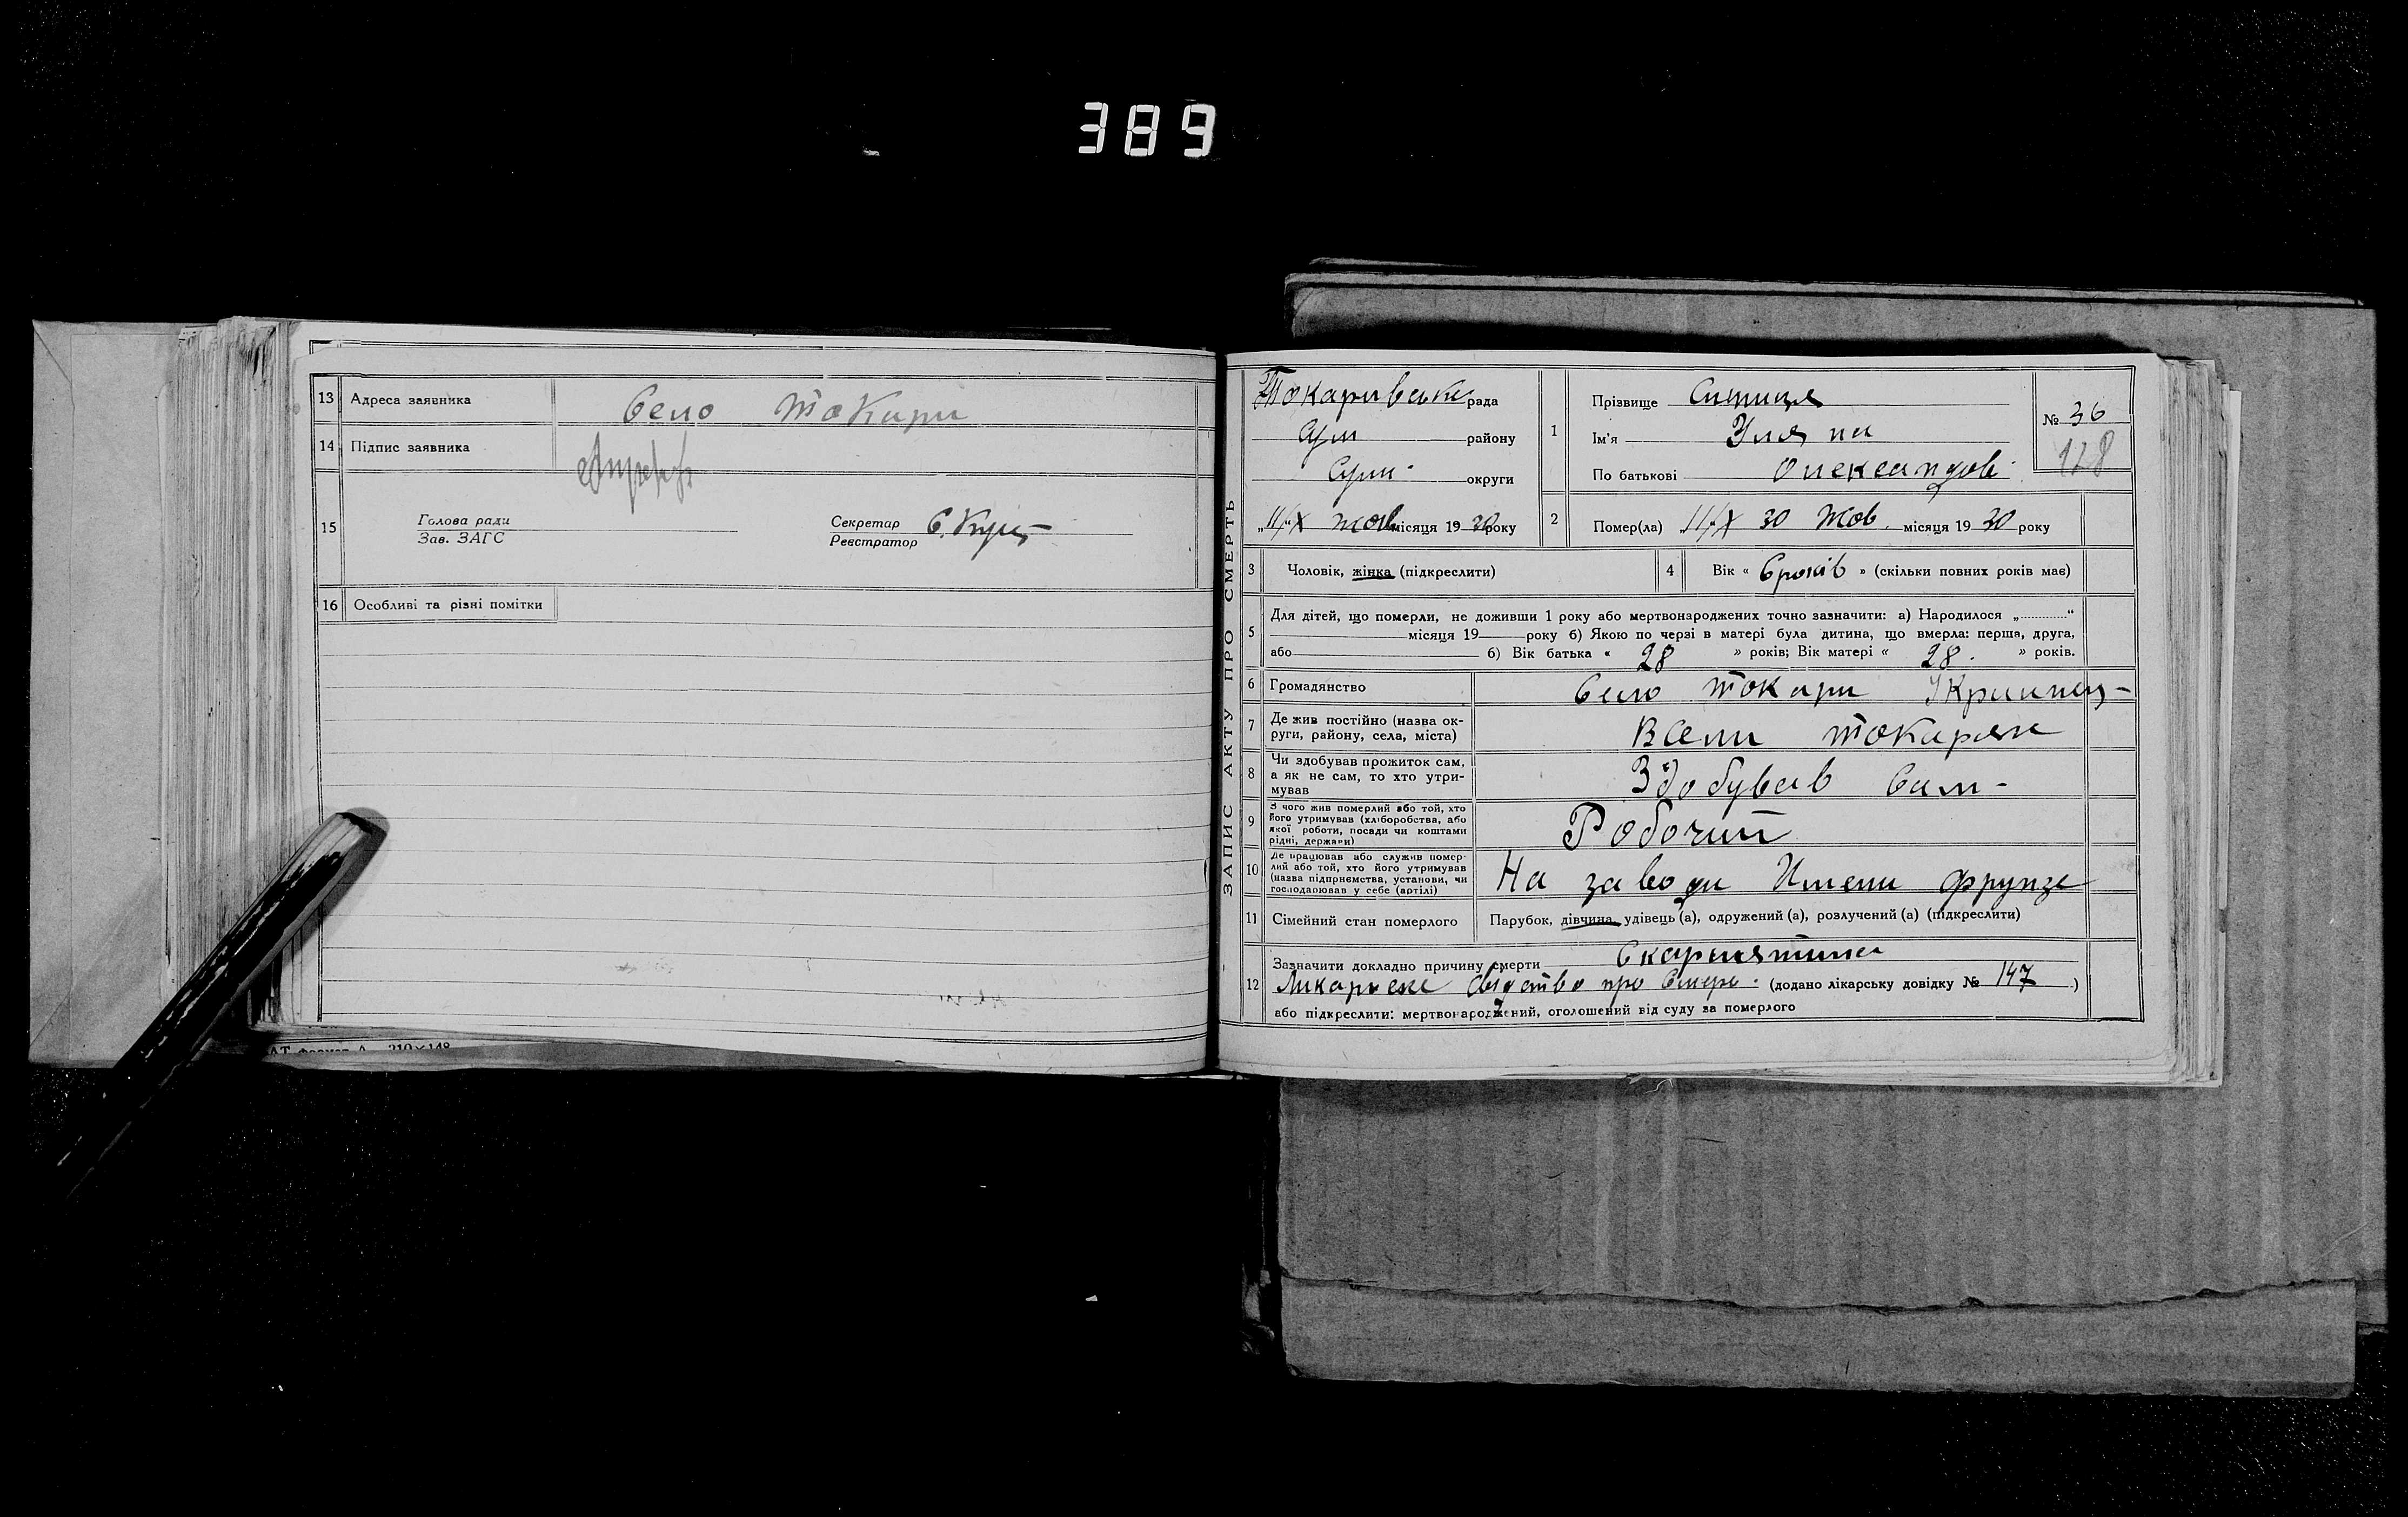 389
13 Адреса заявника Село токари
14 Підпис заявника
15 Голова ради
Зав. ЗАГС
Секретар
Реєстратор
16 Особливі та різні помітки
ЗАПИС АКТУ ПРО СМЕРТЬ
Токаривське рада
Сум району
Сум. округи
„11/X жовмісяця 1930року
1 Прізвище Синиця
Ім'я Уляна
По батькові Олександов.
№ 36
128
2 Помер(ла) „11/X 30 Жов. місяця 1930 року
3 Чоловік, жінка (підкреслити)
4 Вік « 6років » (скільки повних років має)
5 Для дітей, що померли, не доживши 1 року або мертвонароджених точно зазначити: а) Народилося „............“
місяця 19 року б) Якою по черзі в матері була дитина, що вмерла: перша, друга,
або б) Вік батька « 28 » років; Вік матері « 28. » років.
6 Громадянство Село токари Украинец-
7 Де жив постійно (назва ок-
руги, району, села, міста) Всели токарях
8 Чи здобував прожиток сам,
а як не сам, то хто утри-
мував Здобував сам-
9 З чого жив померлий або той, хто
його утримував (хліборобства, або
якої роботи, посади чи коштами
рідні, держави) Робочий
10 Де працював або служив помер-
лий або той, хто його утримував
(назва підприємства, установи, чи
господарював у себе (артілі) На заводи Имени фрунзе
11 Сімейний стан померлого Парубок, дівчина, удівець (а), одружений (а), розлучений (а) (підкреслити)
12 Зазначити докладно причину смерти Скарлятина
Ликарске свидетво про Смерь. (додано лікарську довідку № 147 )
або підкреслити: мертвонароджений, оголошений від суду за померлого